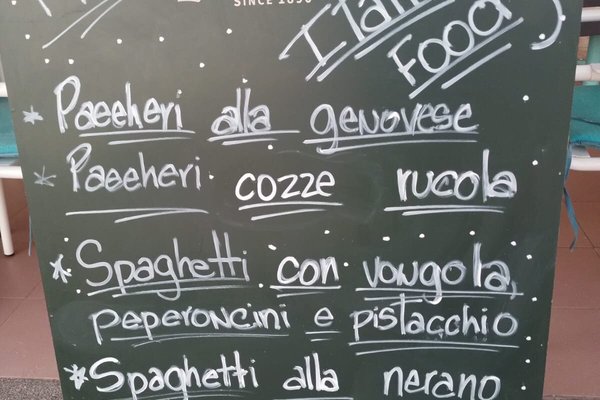 SINCE 1896
Italian
Food
* Paccheri alla genovese
* Paccheri cozze rucola
* Spaghetti con vongola,
peperoncini e pistacchio
* Spaghetti alla nerano